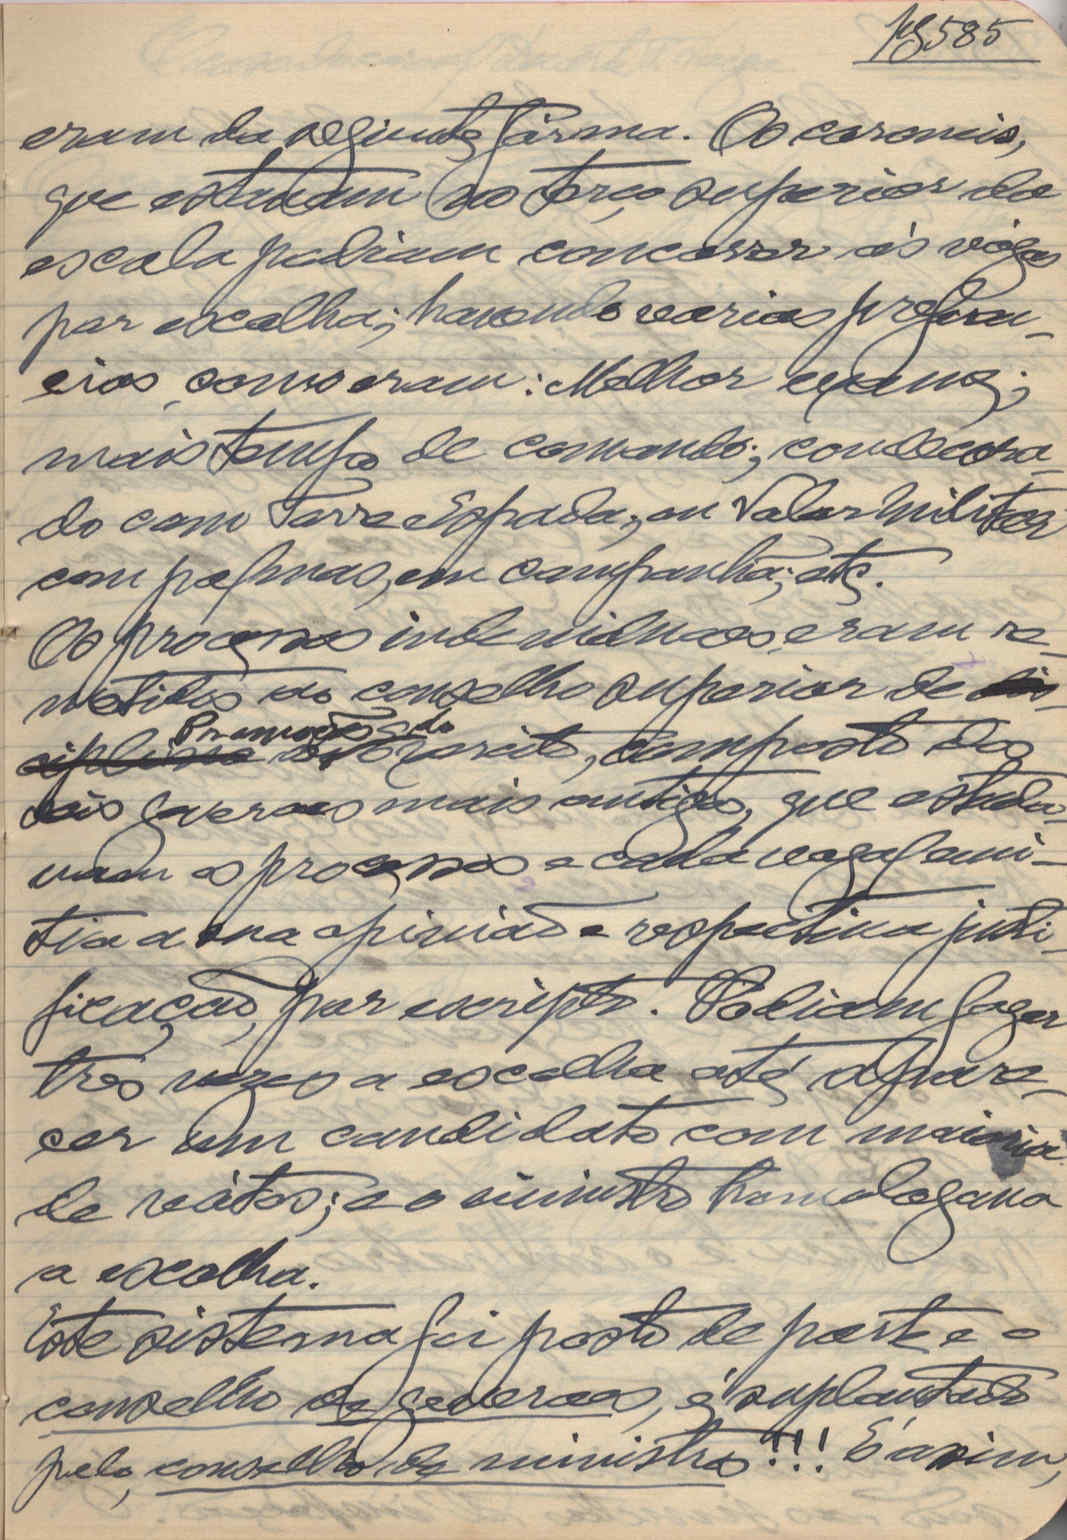 pg 585
eram da seguinte fórma. Os coroneis,
que estavam no terço superior da
escala podiam concorrer ás vagas
por escolha; havendo varios
como eram: Melhor exame;
mais tempo de comando; condecora-
do com Torre Espada, ou Valor Militar
com palmas, em campanha; etc.
Os processos individuaes, eram re-
metidos ao conselho superior de
Promoções do
exercito, composto dos
generaes mais antigos, que estuda-
vam os processos e cada vogal emi-
tia a sua opinião e respectiva justi-
ficação, por escripto. Podiam fazer
três vezes a escolha até apare-
cer um candidato com maioria
de vótos; e o ministro homologava
a escolha.
Este sistema foi posto de parte e o
conselho de generaes, é suplantado
pelo, conselho de ministros!!! E' assim,